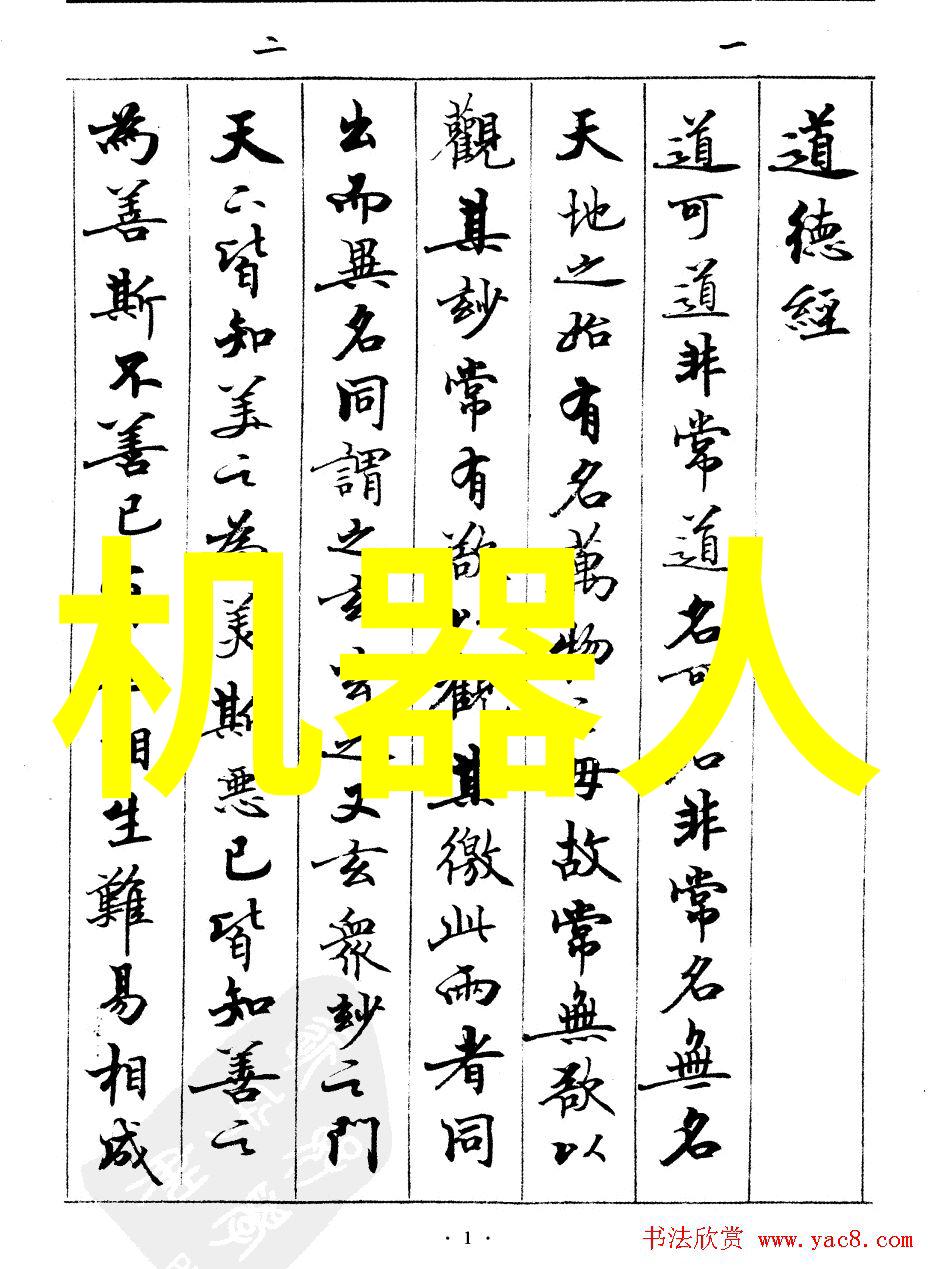 一
二
道德經
道可道非常道名可名非常名無名
天地之始有名萬物之母故常無欲以
觀其玅常有欲以觀其徼此兩者同
出而異名同謂之玄玄之又玄眾玅之門
天下皆知美之為美斯惡已皆知善之
為善斯不善已相生難易相成
机器人
· 1 ·
书法欣赏 www.yac8.com